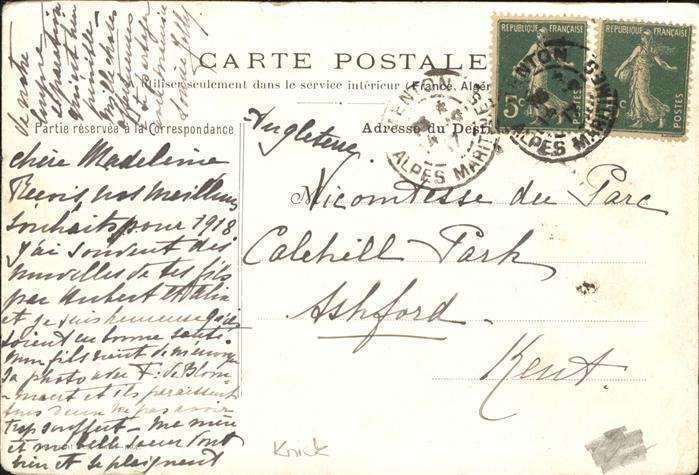 CARTE POSTALE
A utiliser seulement dans le service intérieur (France, Algérie
Partie réservée à la Correspondance
Adresse du Desti
RÉPUBLIQUE FRANÇAISE
5c
RÉPUBLIQUE FRANÇAISE
c
MENTON
ALPES MARITIMES
MENTON
ALPES MARITIMES
Angleterre
Vicomtesse du Parc
Calehill Park
Ashford
Kent
chère Madeleine
Reçois nos meilleurs
souhaits pour 1918
J'ai souvent des
nouvelles de tes fils
par Aubert
et je suis heureuse qu'ils
soient en bonne santé.
Mon fils vient de m'envoyer
sa photo avec F. de Blom
maert et ils paraissent
tous deux ne pas avoir
trop souffert - me mère
et ma belle soeur sont
bien et se plaignent
de notre
longue
séparation
mille choses
affectueuses
Krick